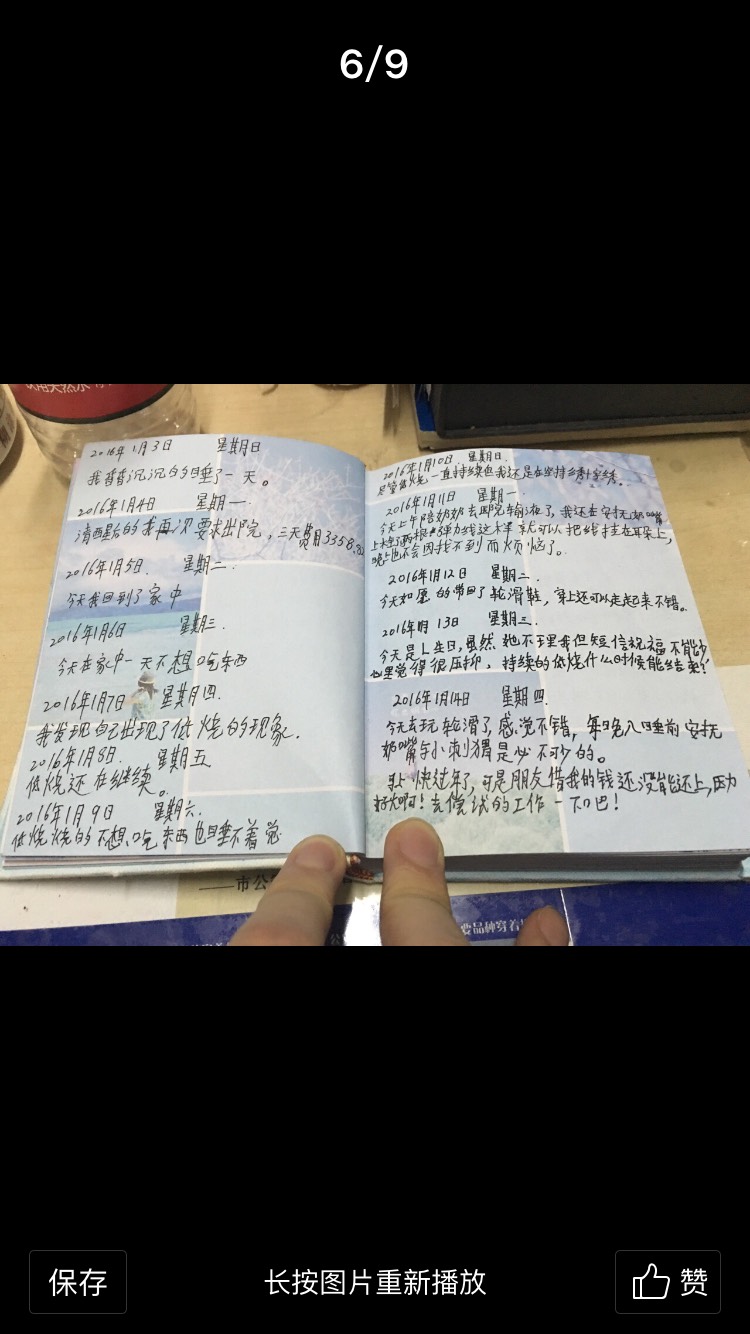 6/9
2016年1月3日 星期日
我昏昏沉沉的睡了一天。
2016年1月4日 星期一.
清醒后的我再次要求出院,三天费用3358.
2016年1月5日. 星期二.
今天我回到了家中
2016年1月6日 星期三.
今天在家中一天不想吃东西
2016年1月7日 星期四.
我发现自己出现了低烧的现象.
2016年1月8日. 星期五
低烧还在继续。
2016年1月9日 星期六.
低烧烧的不想吃东西也睡不着觉
2016年1月10日. 星期日.
尽管低烧一直持续也我还是在坚持绣十字绣。
2016年1月11日 星期一
今天上午陪奶奶去医院输液了,我还在安抚奶嘴
上栓了两根弹力线这样就可以把线挂在耳朵上,
晚上也不会因找不到而烦恼了。
2016年1月12日 星期二.
今天如愿的带回了轮滑鞋,穿上还可以走起来不错。
2016年1月13日 星期三.
今天是上生日,虽然她不理我但短信祝福不能少
心里觉得很压抑,持续的低烧什么时候能结束?
2016年1月14日 星期四.
今天去玩轮滑了感觉不错,每晚入睡前安抚
奶嘴与小刺猬是少不可少的。
马上快过年了,可是朋友借我的钱还没能还上,压力
好大啊!去偿试的工作一下吧!
市公
保存
长按图片重新播放
赞